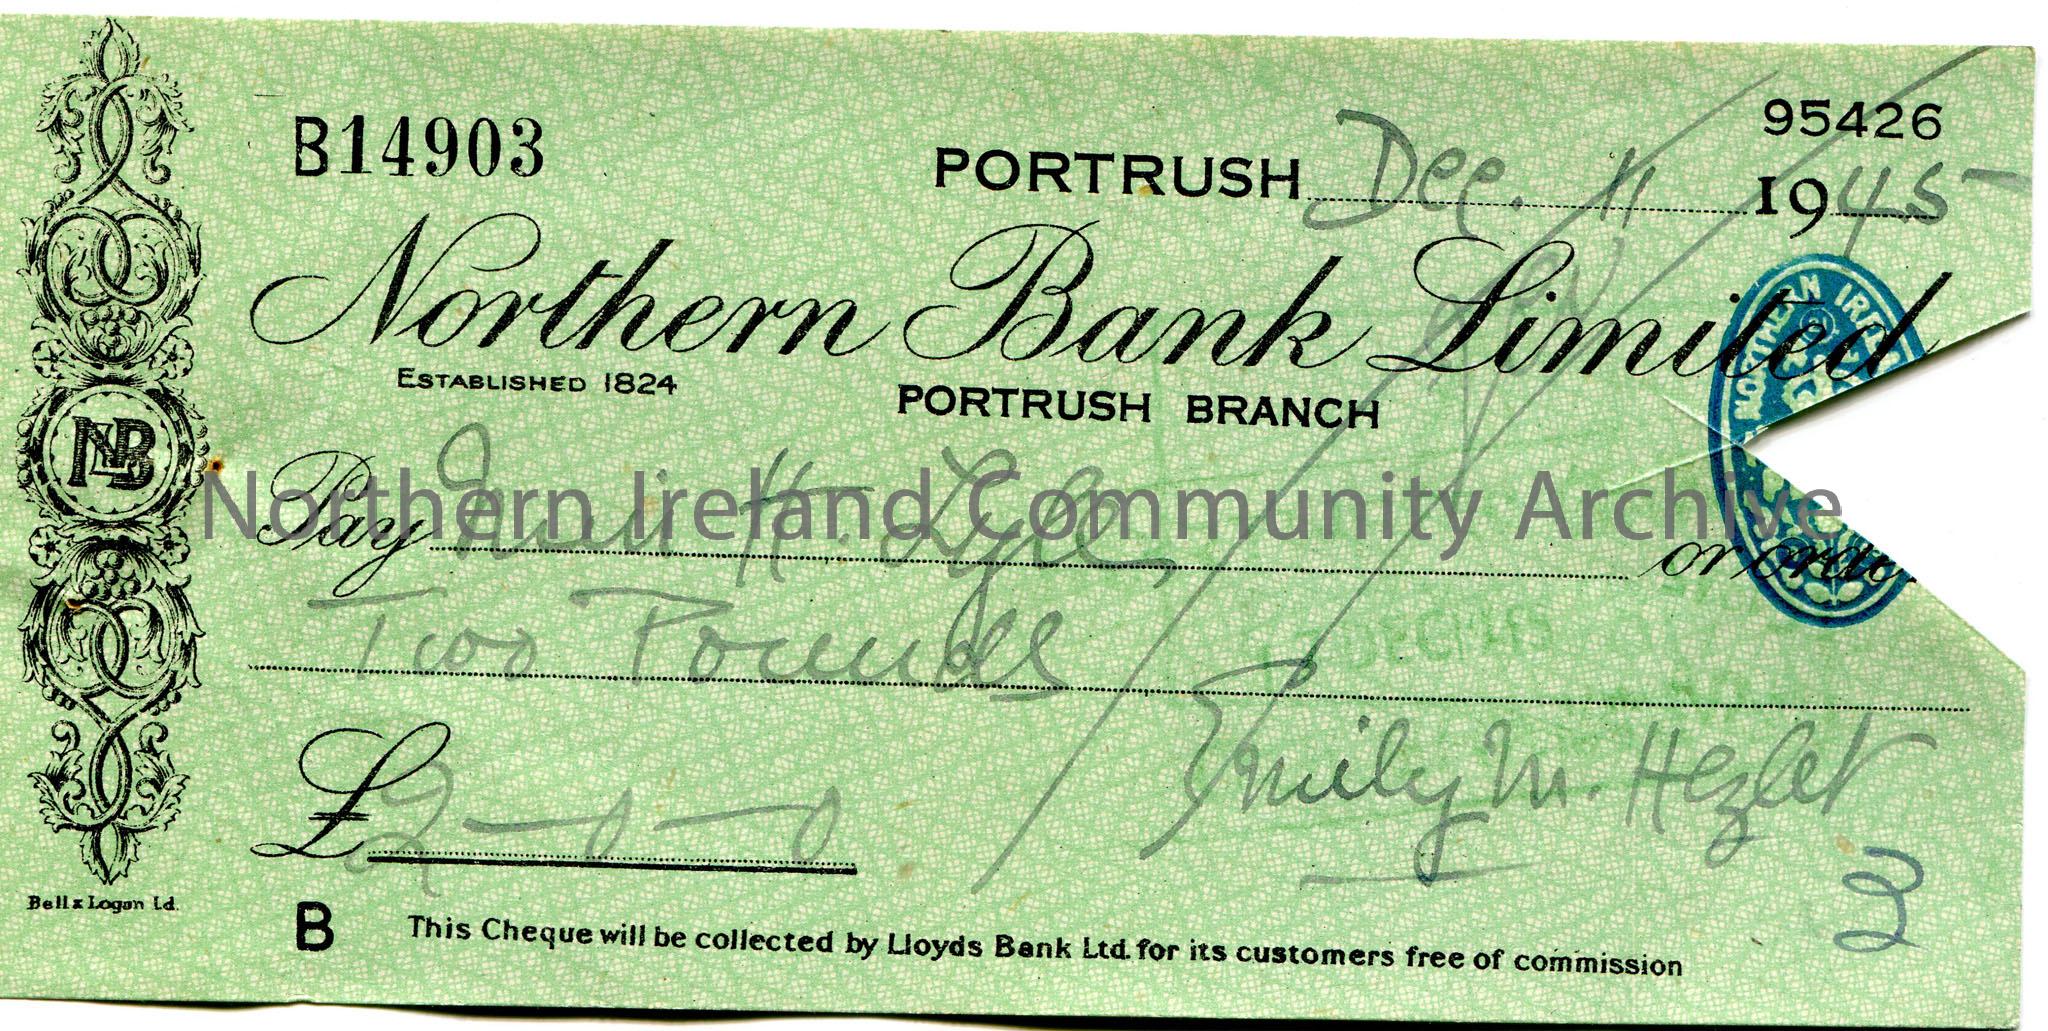 B14903
95426
PORTRUSH Dec. 11 1945
Northern Bank Limited
NORTHERN IRELAND
ESTABLISHED 1824
PORTRUSH BRANCH
NBL
Pay H. Lyle or order
Northern Ireland Community Archive
Two Pounds
DEC 1945
£2-0-0
Emily M. Hezlet
3
Bell & Logan Ld.
B This Cheque will be collected by Lloyds Bank Ltd. for its customers free of commission